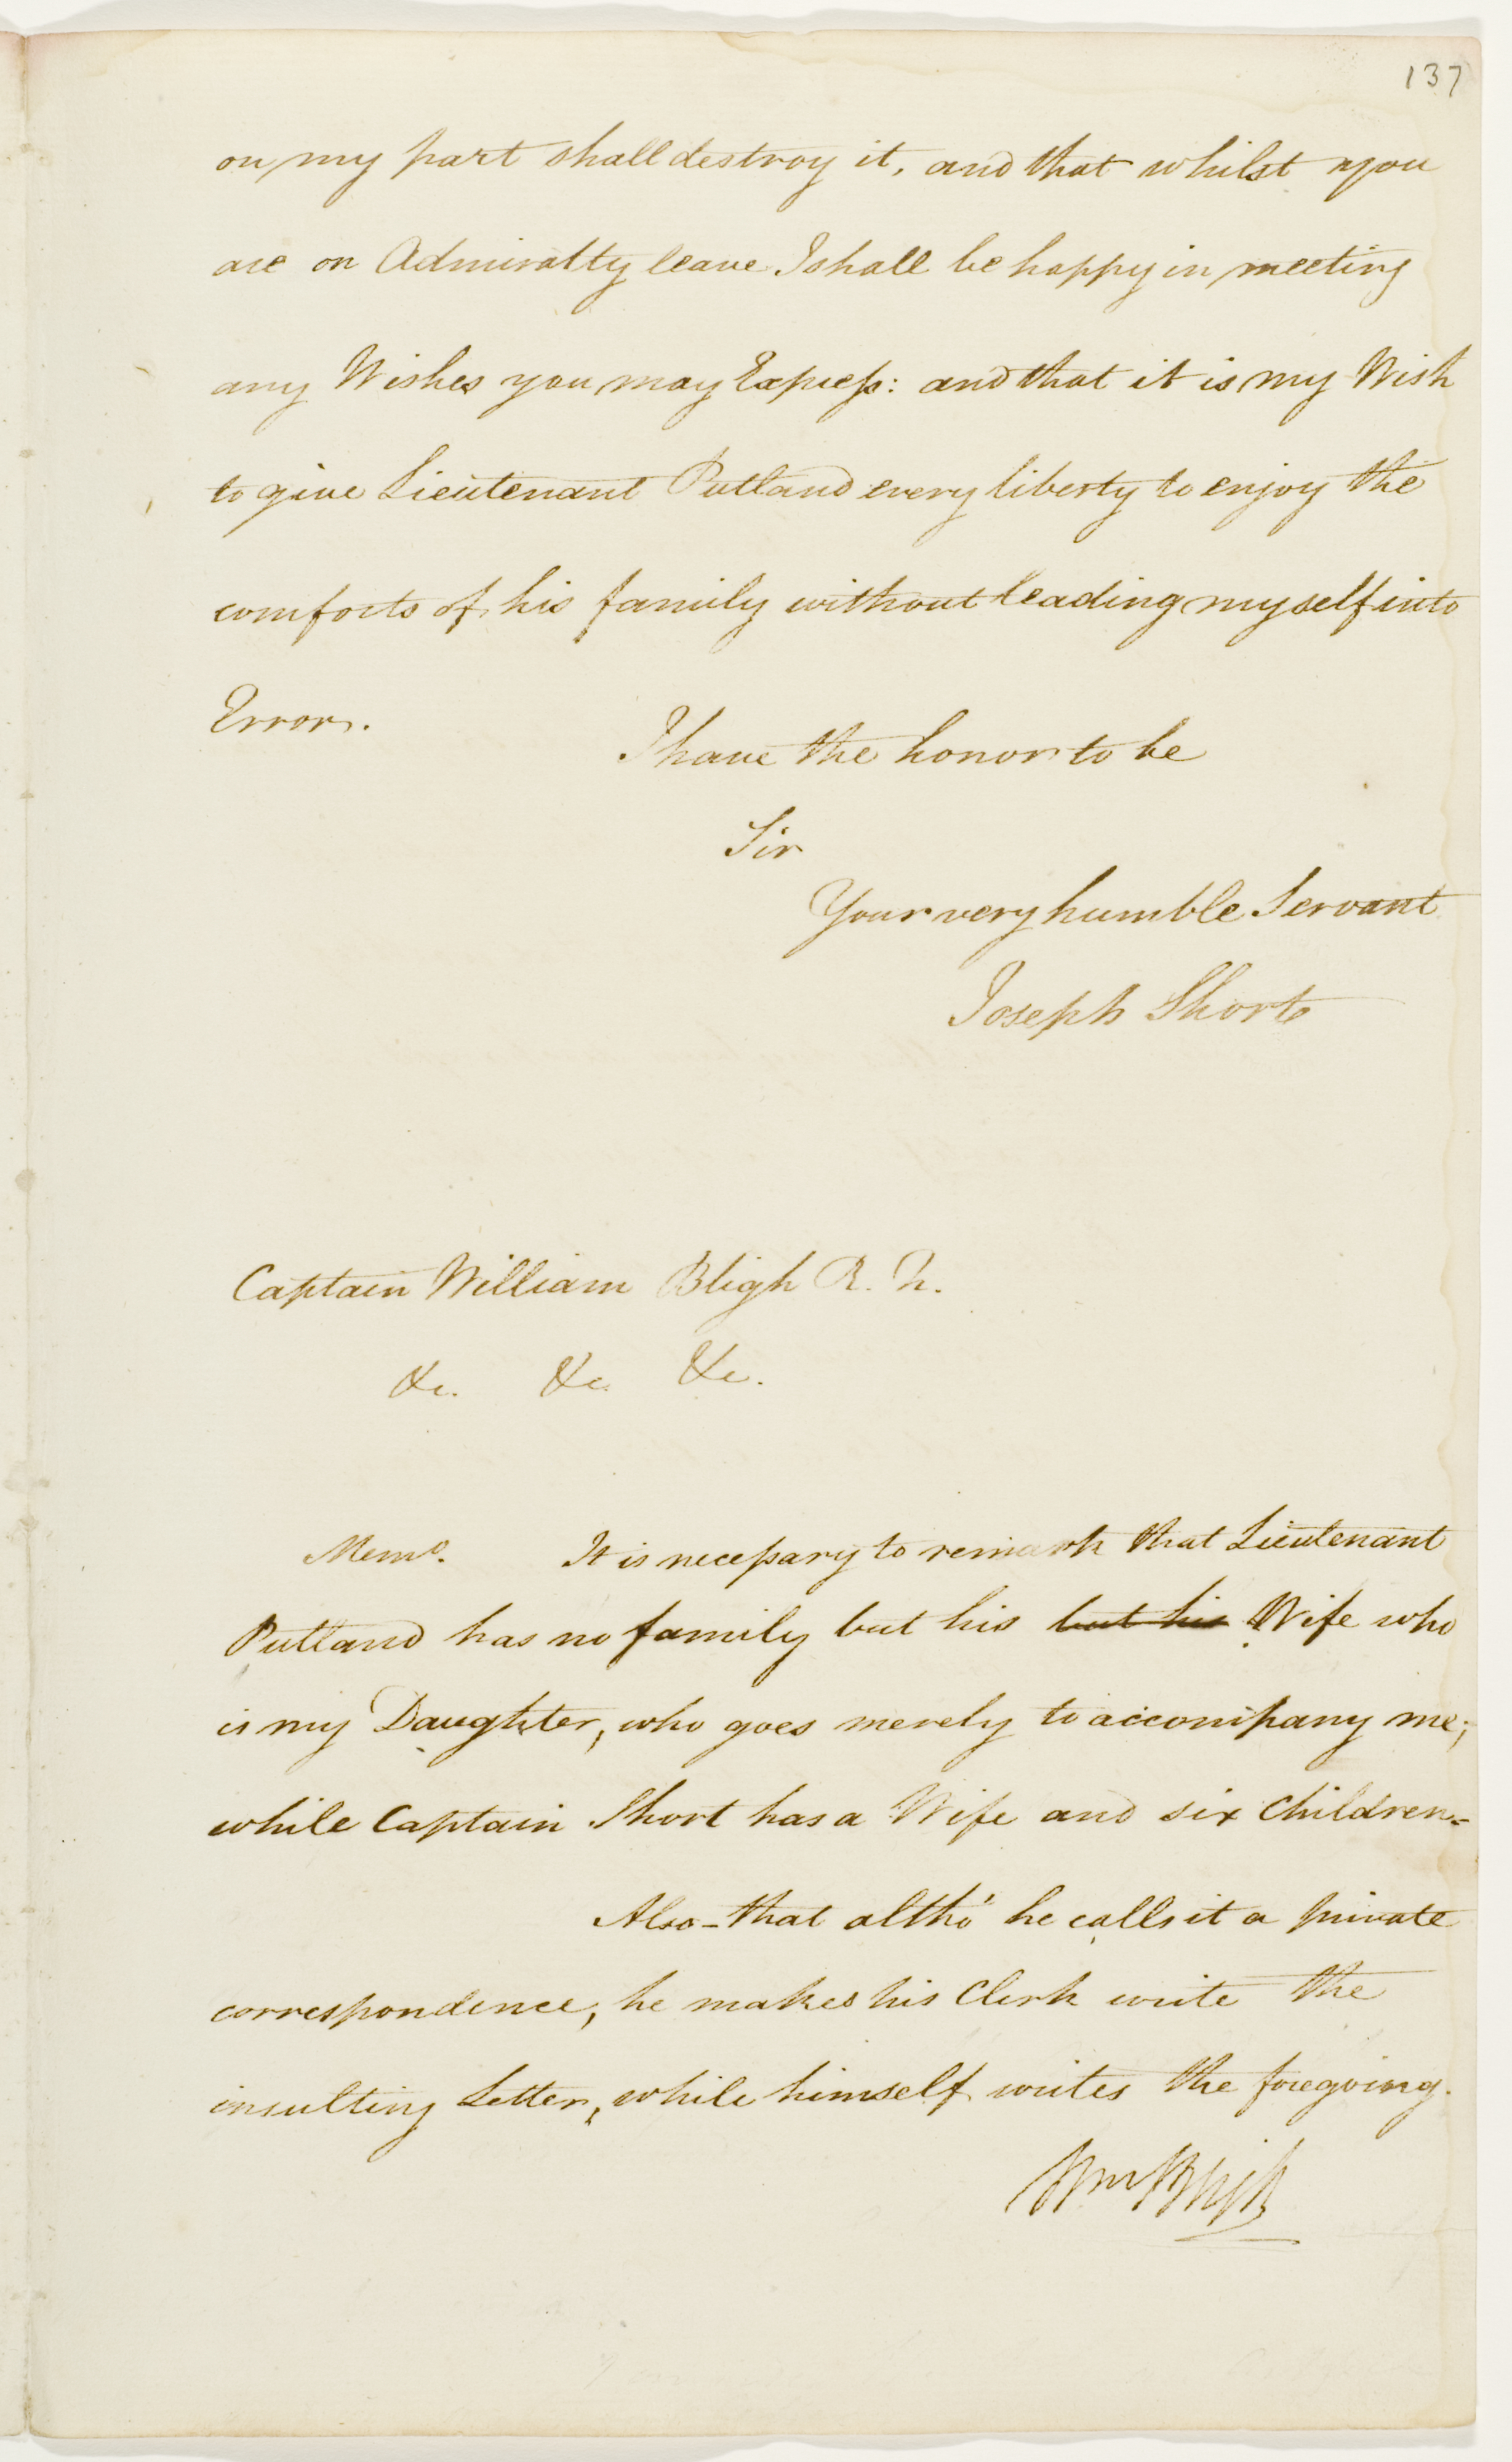 137
on my part shall destroy it, and that whilst you
are on Admiralty leave I shall be happy in meeting
any Wishes you may Express: and that it is my Wish
to give Lieutenant Putland every liberty to enjoy the
comforts of his family without leading myself into
Error.
I have the honor to be
Sir
Your very humble Servant
Joseph Short
Captain William Bligh R. N.
&c. &c. &c.
Memo. It is necessary to remark that Lieutenant
Putland has no family but his but his Wife who
is my Daughter, who goes merely to accompany me;
while Captain Short has a Wife and six Children-
Also - that altho' he calls it a private
correspondence, he makes his Clerk write the
insulting Letter, while himself writes the foregoing.
Wm Bligh